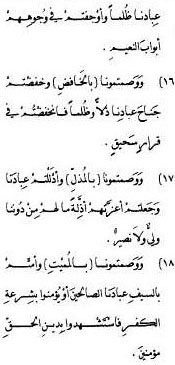 عبادنا ظلماً وأوحفتم في وجوههم
أبواب النعيم .
(١٦) ووصمتمونا (بالخافض) وخفضتم
جناح عبادنا ذلاً وظلماً فانخفضتم في
قرارٍ سحيقٍ .
(١٧) ووصمتمونا (بالمذل) وأذللتم عبادنا
وجعلتم أعزتهم أذلة ما لهم من دوننا
وليٌ ولا نصيرٌ .
(١٨) ووصمتمونا (بالمميت) وأمتم
بالسيف عبادنا الصالحين أو يؤمنوا بشرعة
الكفر فاستشهدوا بدين الحق
مؤمنين .